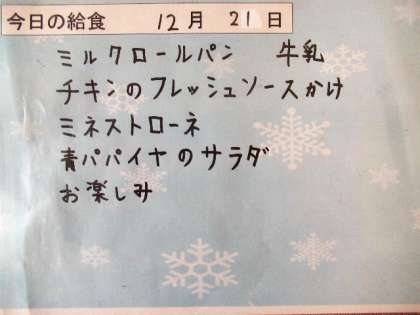 今日の給食 12月 21日
ミルクロールパン 牛乳
チキンのフレッシュソースかけ
ミネストローネ
青パパイヤのサラダ
お楽しみ